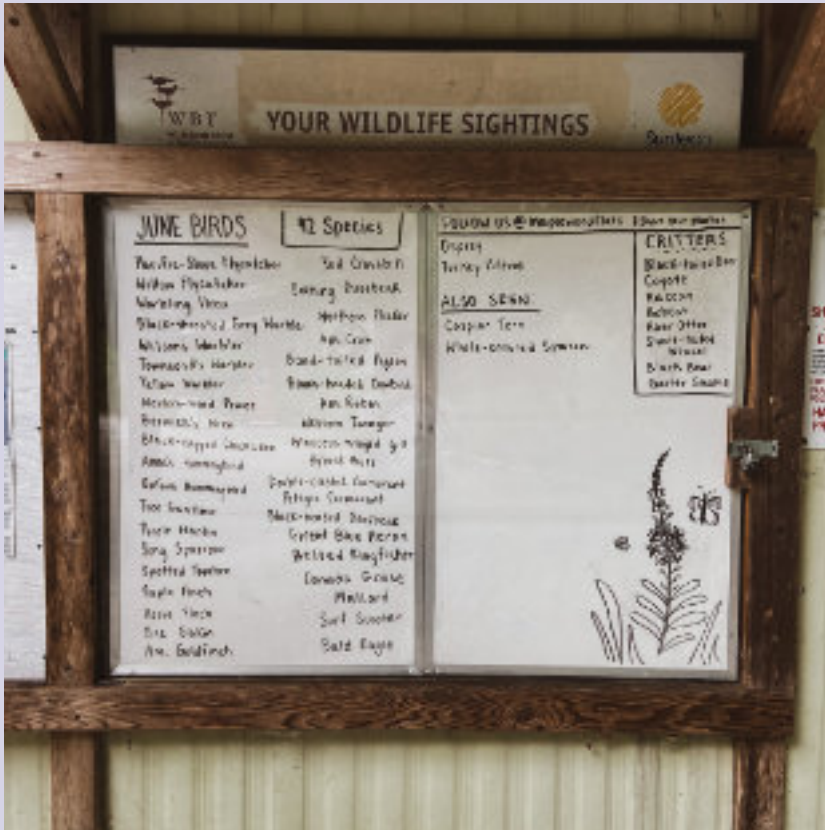 WBT
YOUR WILDLIFE SIGHTINGS
JUNE BIRDS
42 Species
Pacific-Slope Flycatcher
Willow Flycatcher
Warbling Vireo
Black-throated Grey Warbler
Wilson's Warbler
Townsend's Warbler
Yellow Warbler
Bewick's Wren
Black-capped Chickadee
Anna's Hummingbird
Rufous Hummingbird
Tree Swallow
Purple Martin
Song Sparrow
Spotted Towhee
Purple Finch
House Finch
Pine Siskin
Am. Goldfinch
Red Crossbill
Evening Grosbeak
Northern Flicker
Am. Crow
Band-tailed Pigeon
Brown-headed Cowbird
Am. Robin
Western Tanager
Double-crested Cormorant
Pelagic Cormorant
Black-headed Grosbeak
Great Blue Heron
Belted Kingfisher
Canada Goose
Mallard
Surf Scoter
Bald Eagle
FOLLOW US @
Osprey
Turkey Vulture
ALSO SEEN
Caspian Tern
White-crowned Sparrow
CRITTERS
Black-tailed Deer
Coyote
Raccoon
River Otter
Short-tailed
Weasel
Black Bear
Garter Snake